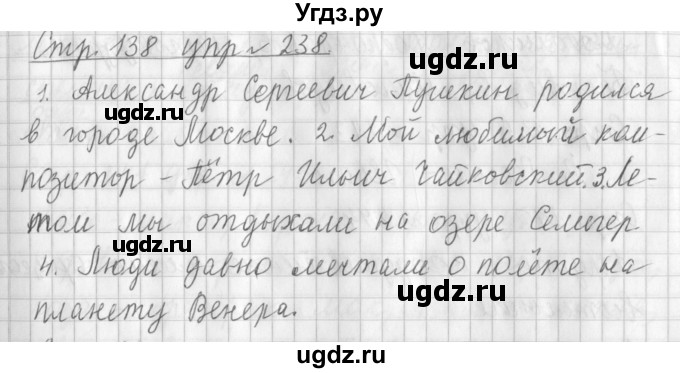 Угдз.ру
Стр. 138 упр № 238.
ugdz.ru
ugdz.ru
1. Александр Сергеевич Пушкин родился
в городе Москве. 2. Мой любимый ком-
ugdz.ru
позитор - Пётр Ильич Чайковский. 3. Ле-
том мы отдыхали на озере Селигер
ugdz.ru
4. Люди давно мечтали о полёте на
ugdz.ru
планету Венера.
ugdz.ru
ugdz.ru